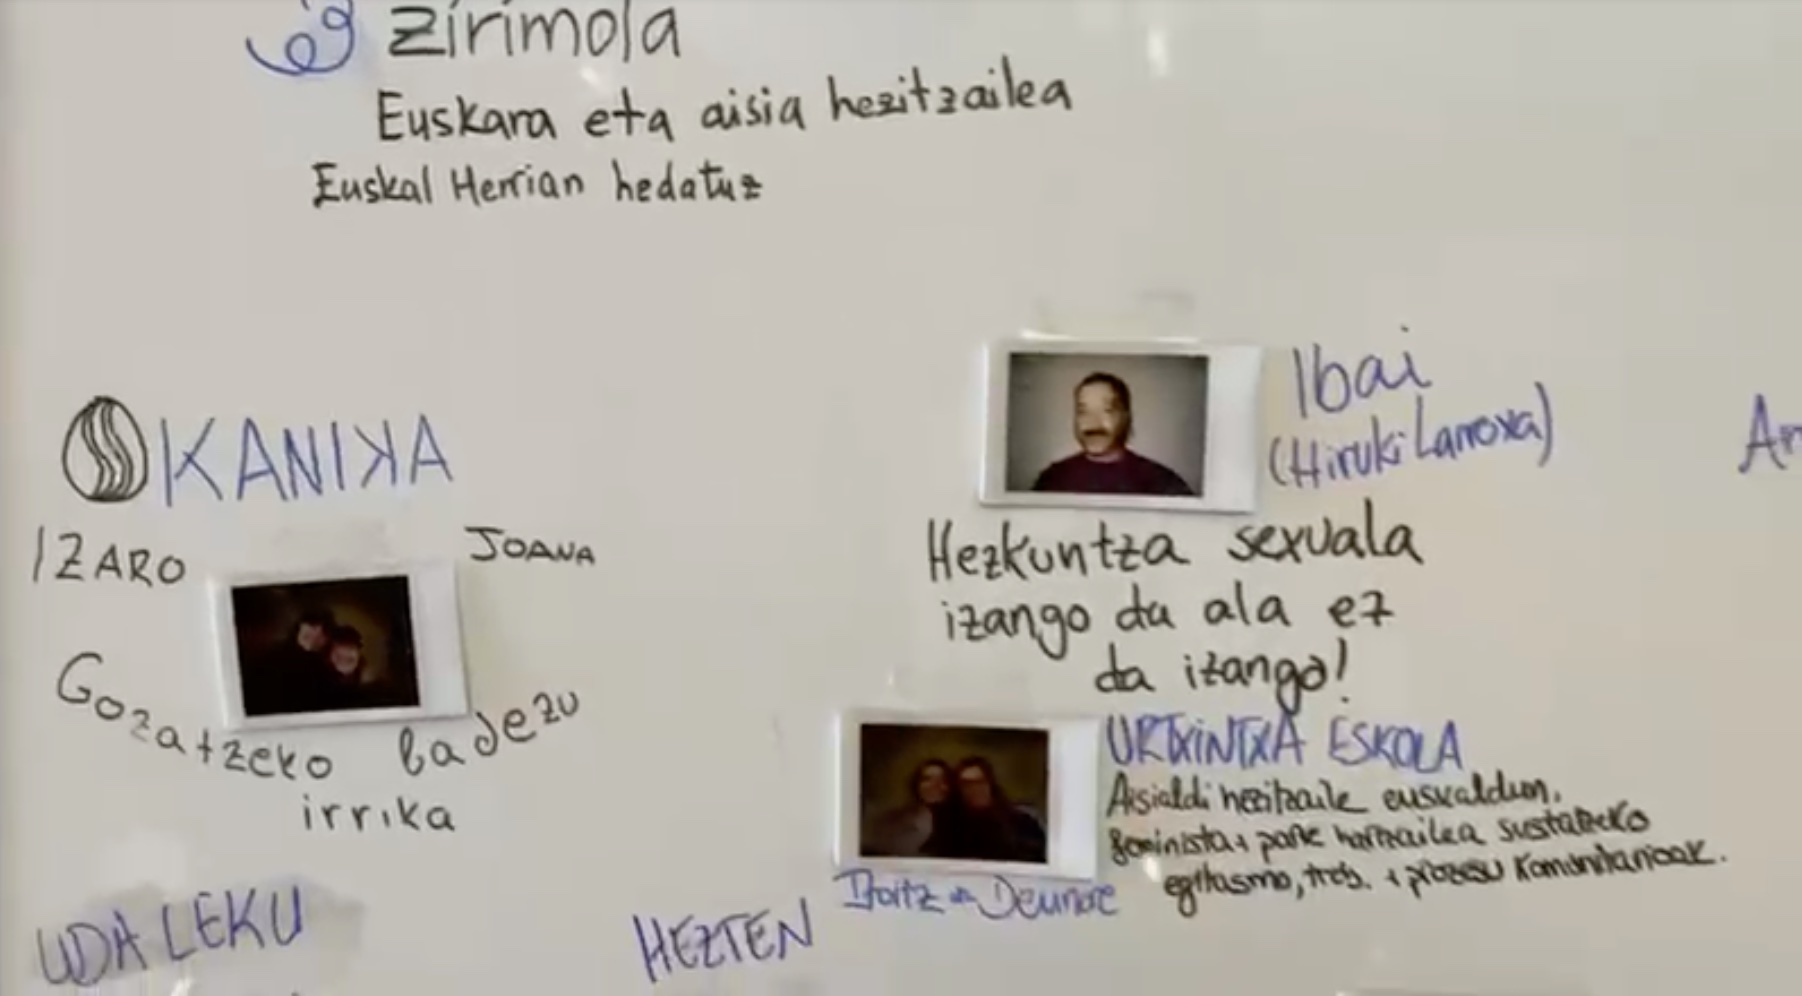 zirimola
Euskara eta aisia hezitzailea
Euskal Herrian hedatuz
KANIKA
IZARO
JOANA
Gozatzeko badezu
irrika
Ibai
(Hiruki Larroxa)
Hezkuntza sexuala
izango da ala ez
da izango!
URTXINTXA ESKOLA
Aisialdi hezitzaile euskaldun,
feminista + parte hartzailea sustatzeko
egitasmo, treb. + prozesu komunitarioak.
UDA LEKU
HEZTEN